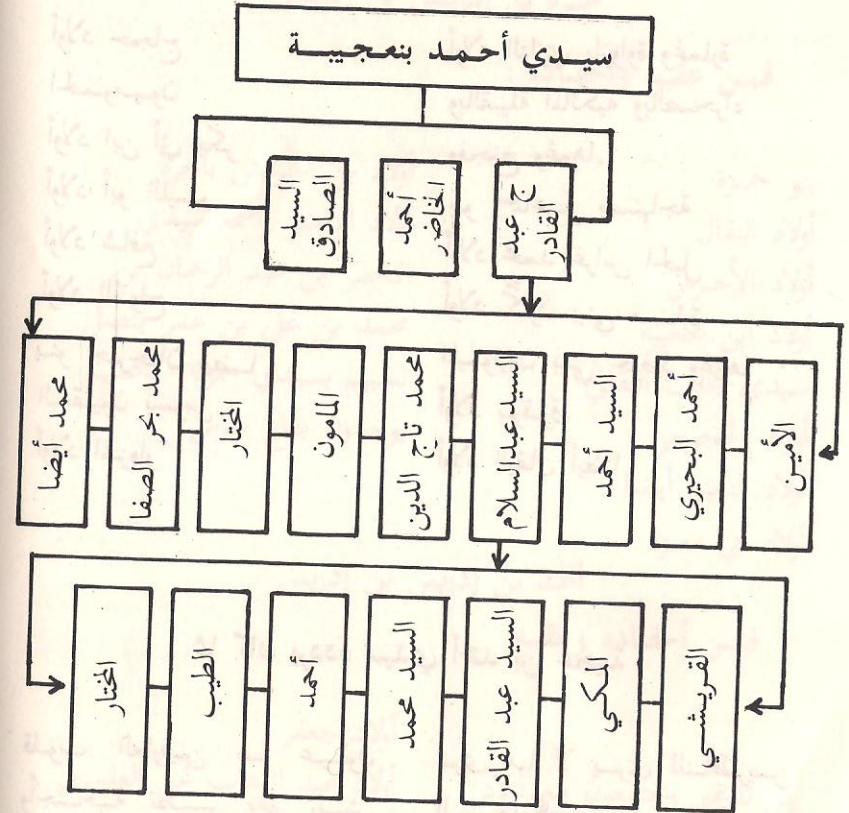 سيدي أحمد بنعجيبة
ج عبد
القادر
أحمد
الخاضر
السيد
الصادق
الأمين
أحمد البحيري
السيد أحمد
السيد عبدالسلام
محمد تاج الدين
المامون
المختار
محمد بحر الصفا
محمد أيضا
القريشي
المكي
السيد عبد القادر
السيد محمد
أحمد
الطيب
المختار